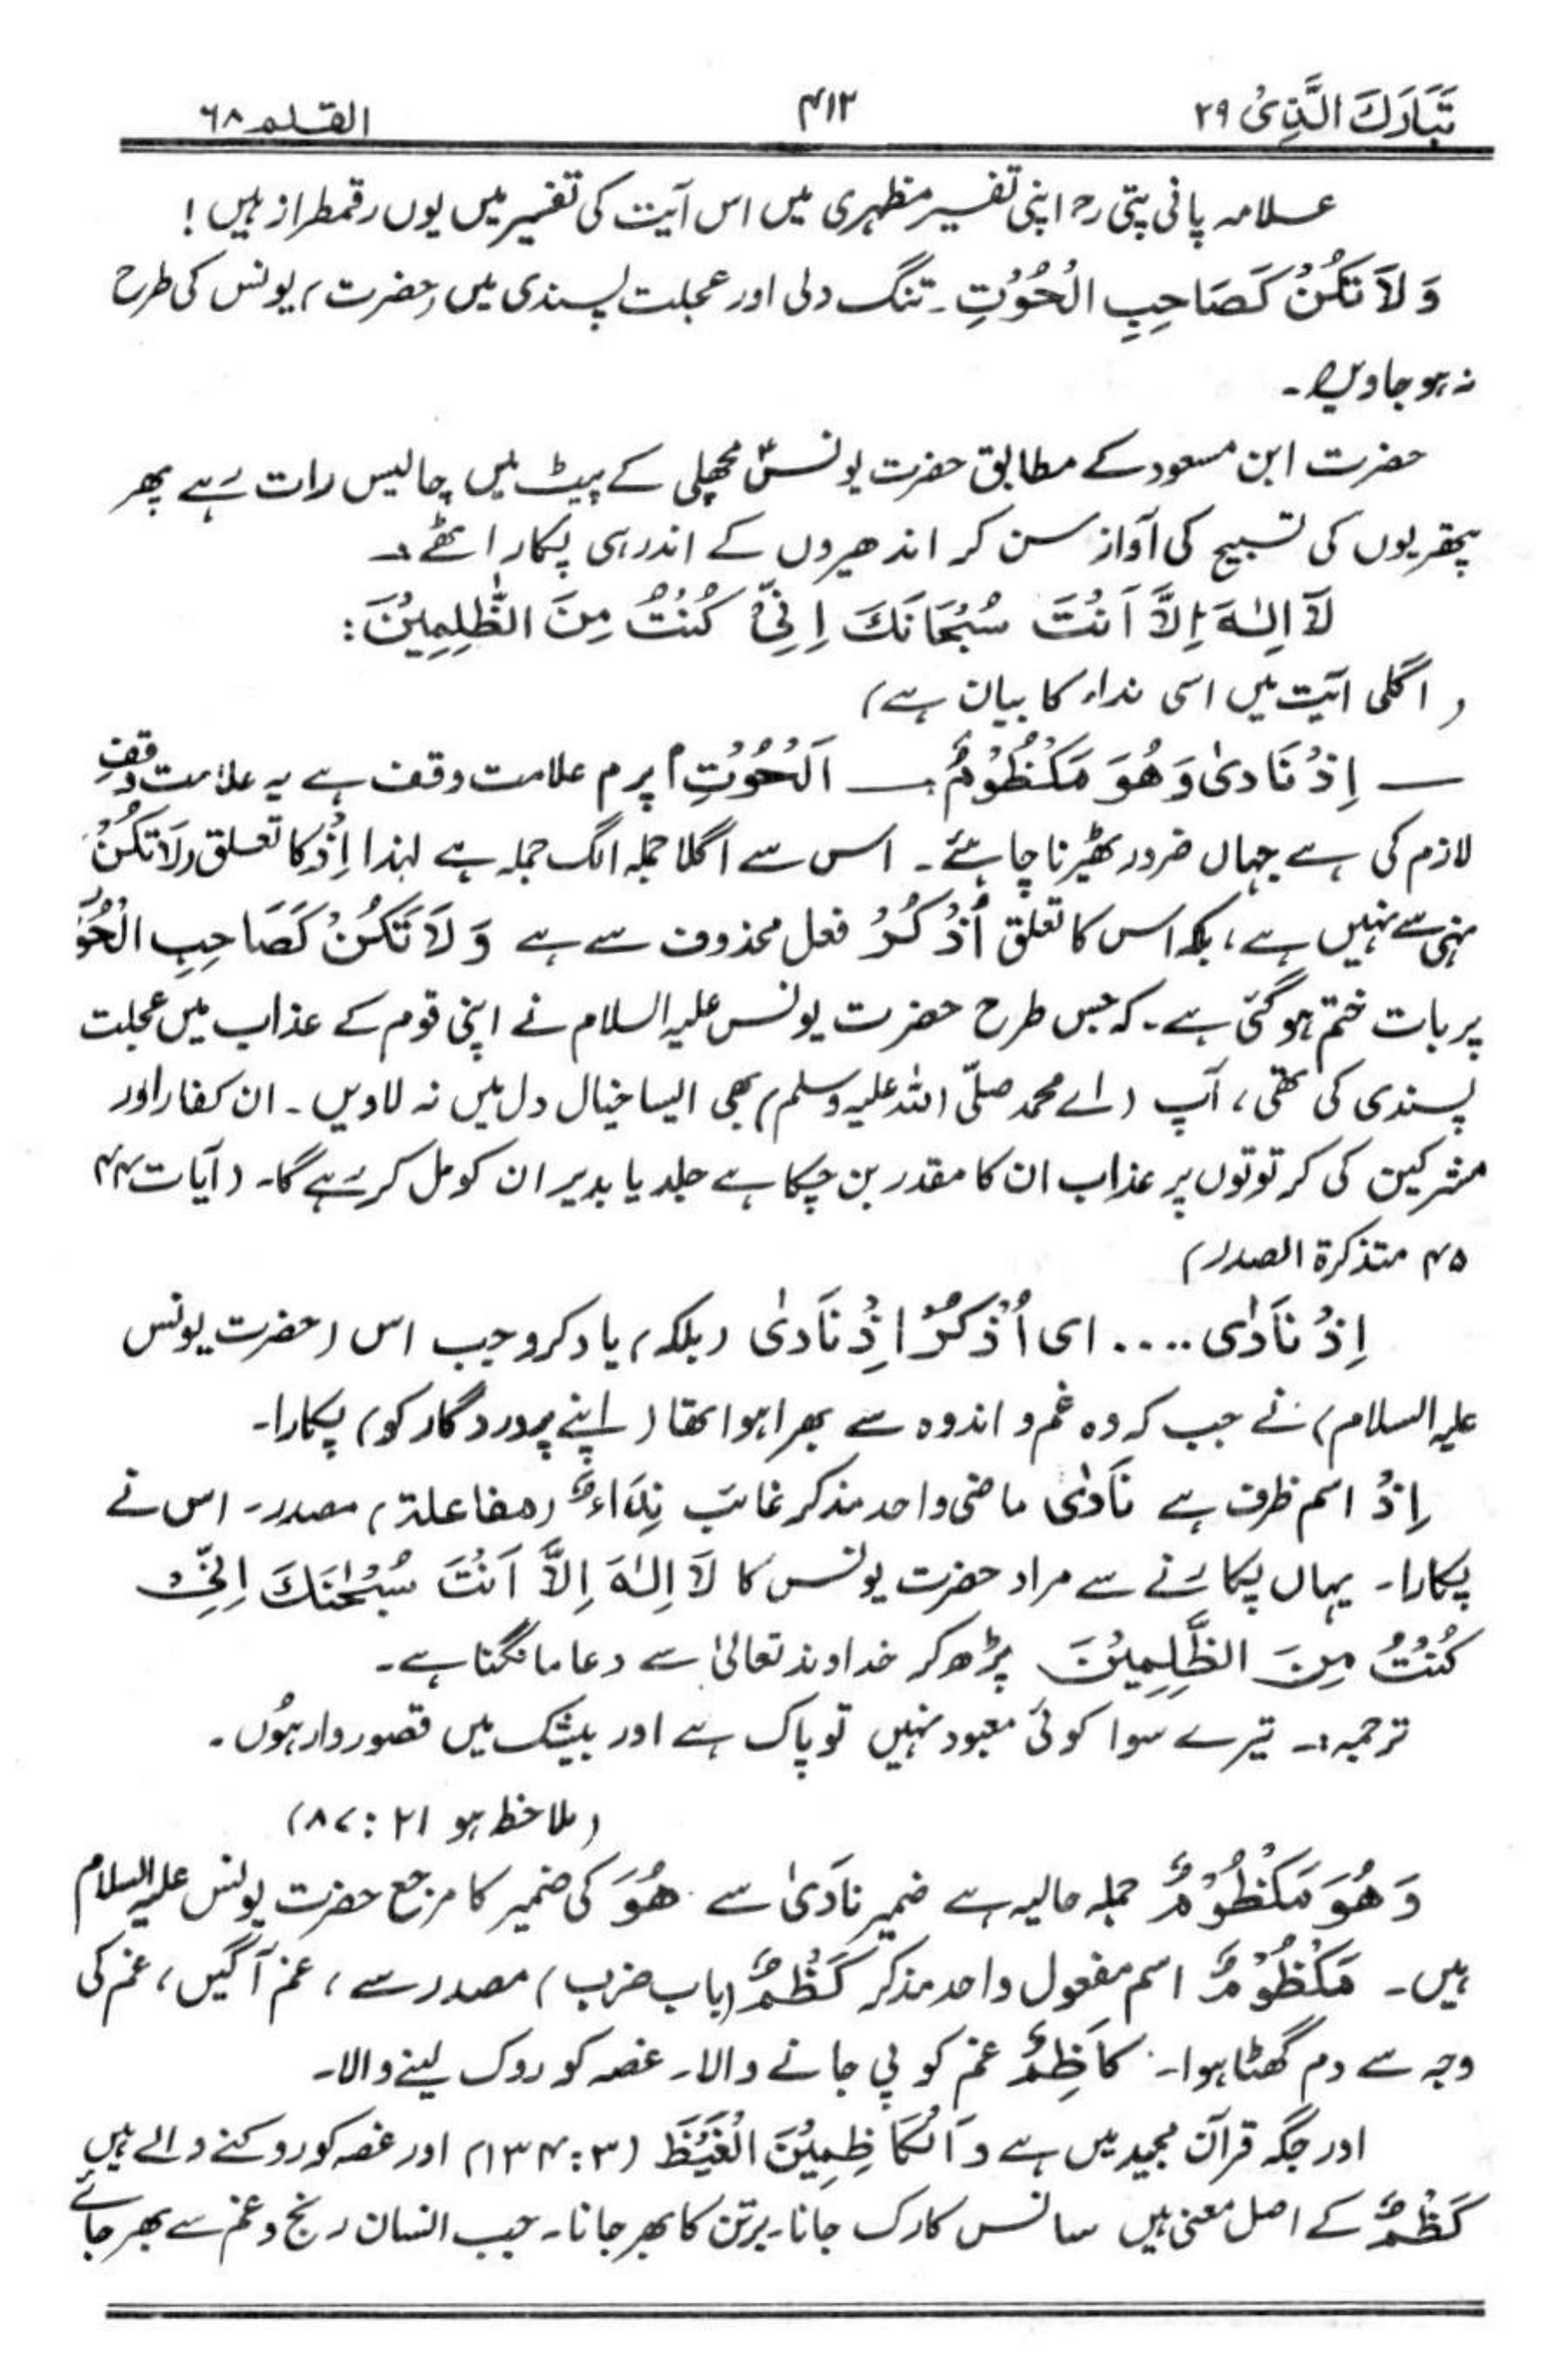 تَبَارَكَ الَّذِیْ ۲۹
۴۱۲
القلم ۶۸
علامہ پانی پتی رح اپنی تفسیر مظہری میں اس آیت کی تفسیر میں یوں رقمطراز ہیں !
وَلَا تَكُنْ كَصَاحِبِ الْحُوْتِ ۔ تنگ دلی اور عجلت پسندی میں (حضرت) یونس کی طرح
نہ ہو جاویں۔
حضرت ابن مسعود کے مطابق حضرت یونسؑ مچھلی کے پیٹ میں چالیس رات رہے پھر
پتھریوں کی تسبیح کی آواز سن کر اندھیروں کے اندر ہی پکار اٹھے :۔
لَآ اِلٰهَ اِلَّآ اَنْتَ سُبْحَانَكَ اِنِّیْ كُنْتُ مِنَ الظّٰلِمِیْنَ :
( اگلی آیت میں اسی نداء کا بیان ہے)
ـــ اِذْ نَادٰی وَهُوَ مَكْظُوْمٌ :ـــ اَلْحُوْتِ م پر م علامت وقف ہے یہ علامت وقفِ
لازم کی ہے جہاں ضرور ٹھیرنا چاہئے۔ اس سے اگلا جملہ الگ جملہ ہے لہٰذا اِذْ کا تعلق ولَا تَكُنْ
نہی سے نہیں ہے، بلکہ اس کا تعلق اُذْكُرْ فعل محذوف سے ہے وَلَا تَكُنْ كَصَاحِبِ الْحُوْ
پر بات ختم ہو گئی ہے۔ کہ جس طرح حضرت یونس علیہ السلام نے اپنی قوم کے عذاب میں عجلت
پسندی کی تھی، آپ (اے محمد صلّی اللہ علیہ وسلم) بھی ایسا خیال دل میں نہ لاویں۔ ان کفار اور
مشرکین کی کرتوتوں پر عذاب ان کا مقدر بن چکا ہے جلد یا بدیر ان کو مل کر رہے گا۔ (آیات ۴۴
۴۵ متذکرۃ الصدر)
اِذْ نَادٰی .... ای اُذْكُرْ اِذْ نَادٰی (بلکہ) یاد کرو جب اس (حضرت یونس
علیہ السلام) نے جب کہ وہ غم و اندوہ سے بھرا ہوا تھا (اپنے پروردگار کو) پکارا۔
اِذْ اسم ظرف ہے نَادٰی ماضی واحد مذکر غائب نِدَاءٌ (مفاعلة) مصدر۔ اس نے
پکارا۔ یہاں پکارنے سے مراد حضرت یونس کا لَا اِلٰهَ اِلَّا اَنْتَ سُبْحٰنَكَ اِنِّیْ
كُنْتُ مِنَ الظّٰلِمِیْنَ پڑھ کر خداوند تعالیٰ سے دعا مانگنا ہے۔
ترجمہ :۔ تیرے سوا کوئی معبود نہیں تو پاک ہے اور بیشک میں قصوروار ہُوں۔
(ملاحظہ ہو ۲۱ : ۸۷)
وَهُوَ مَكْظُوْمٌ جملہ حالیہ ہے ضمیر نَادٰی سے ۔ هُوَ کی ضمیر کا مرجع حضرت یونس علیہ السلام
ہیں۔ مَكْظُوْمٌ اسم مفعول واحد مذکر كَظْمٌ (باب ضرب) مصدر سے ، غم آگیں، غم کی
وجہ سے دم گھٹا ہوا۔ كَاظِمٌ غم کو پی جانے والا۔ غصہ کو روک لینے والا۔
اور جگہ قرآن مجید میں ہے وَ الْكَاظِمِیْنَ الْغَیْظَ (۳ : ۱۳۴) اور غصہ کو روکنے والے ہیں
كَظْمٌ کے اصل معنی ہیں سانس کا رک جانا۔ برتن کا بھر جانا۔ جب انسان رنج و غم سے بھر جائے